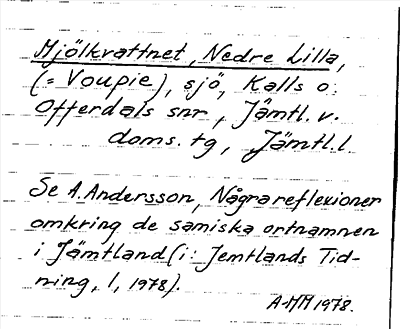 Mjölkvattnet, Nedre Lilla,
(= Voupie), sjö, Kalls o.
Offerdals snr, Jämtl. v.
doms. tg, Jämtl. l.
Se A. Andersson, Några reflexioner
omkring de samiska ortnamnen
i Jämtland (i: Jemtlands Tid-
ning, l, 1978).
A-MM 1978.